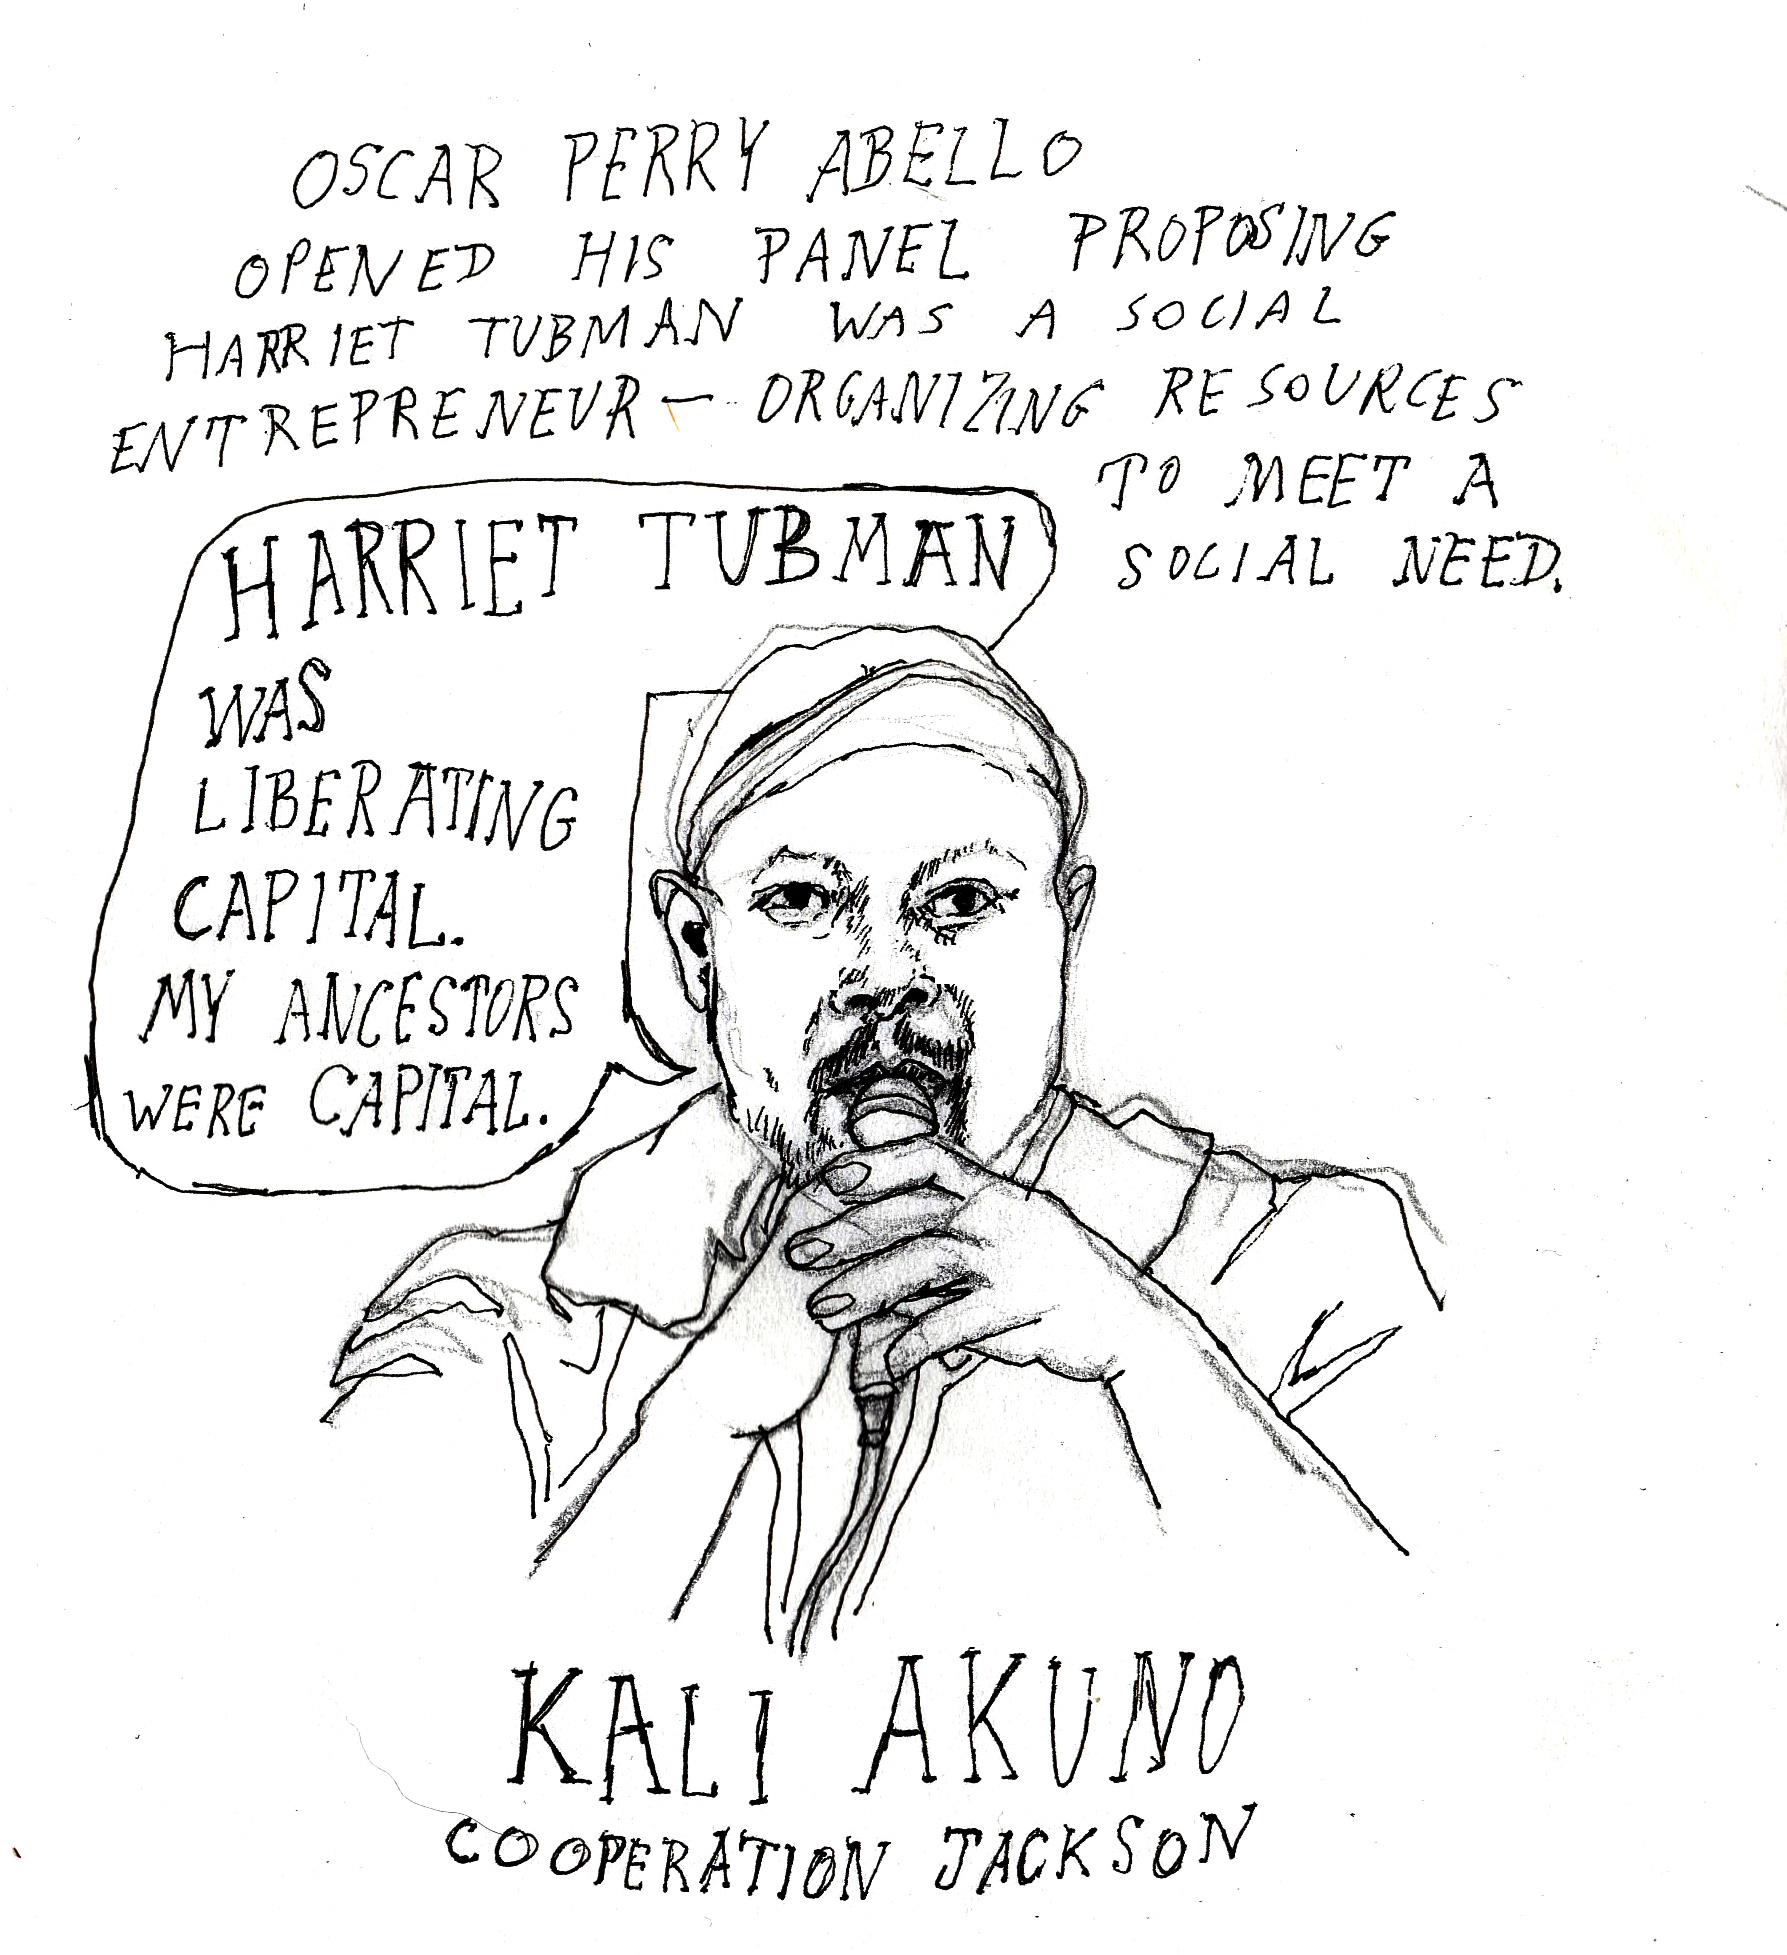 OSCAR PERRY ABELLO
OPENED HIS PANEL PROPOSING
HARRIET TUBMAN WAS A SOCIAL
ENTREPRENEUR — ORGANIZING RESOURCES
TO MEET A
SOCIAL NEED.
HARRIET TUBMAN
WAS
LIBERATING
CAPITAL.
MY ANCESTORS
WERE CAPITAL.
KALI AKUNO
COOPERATION JACKSON